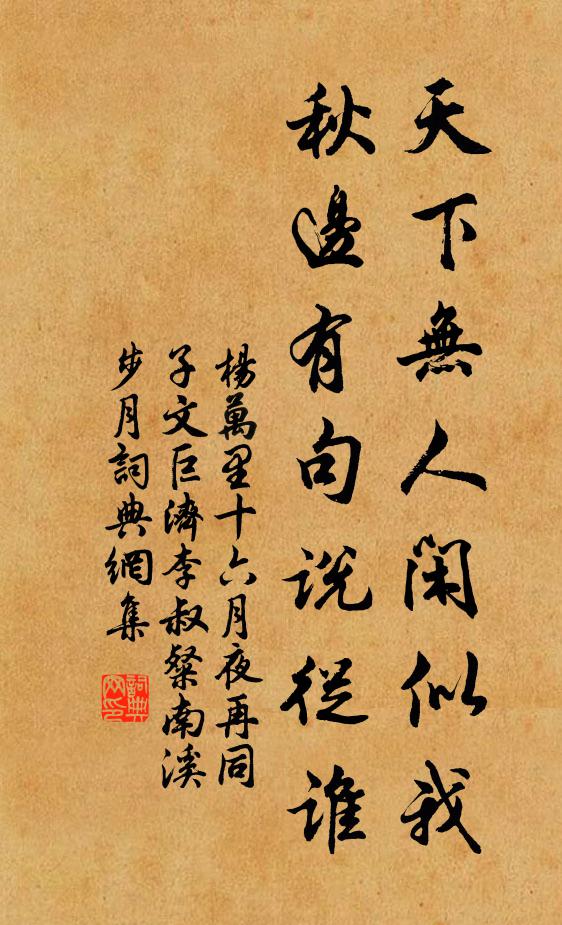 天下無人閑似我
秋邊有句説從誰
楊萬里十六月夜再同
子文巨濟李叔粲南溪
步月詞典網集
詞典
网印